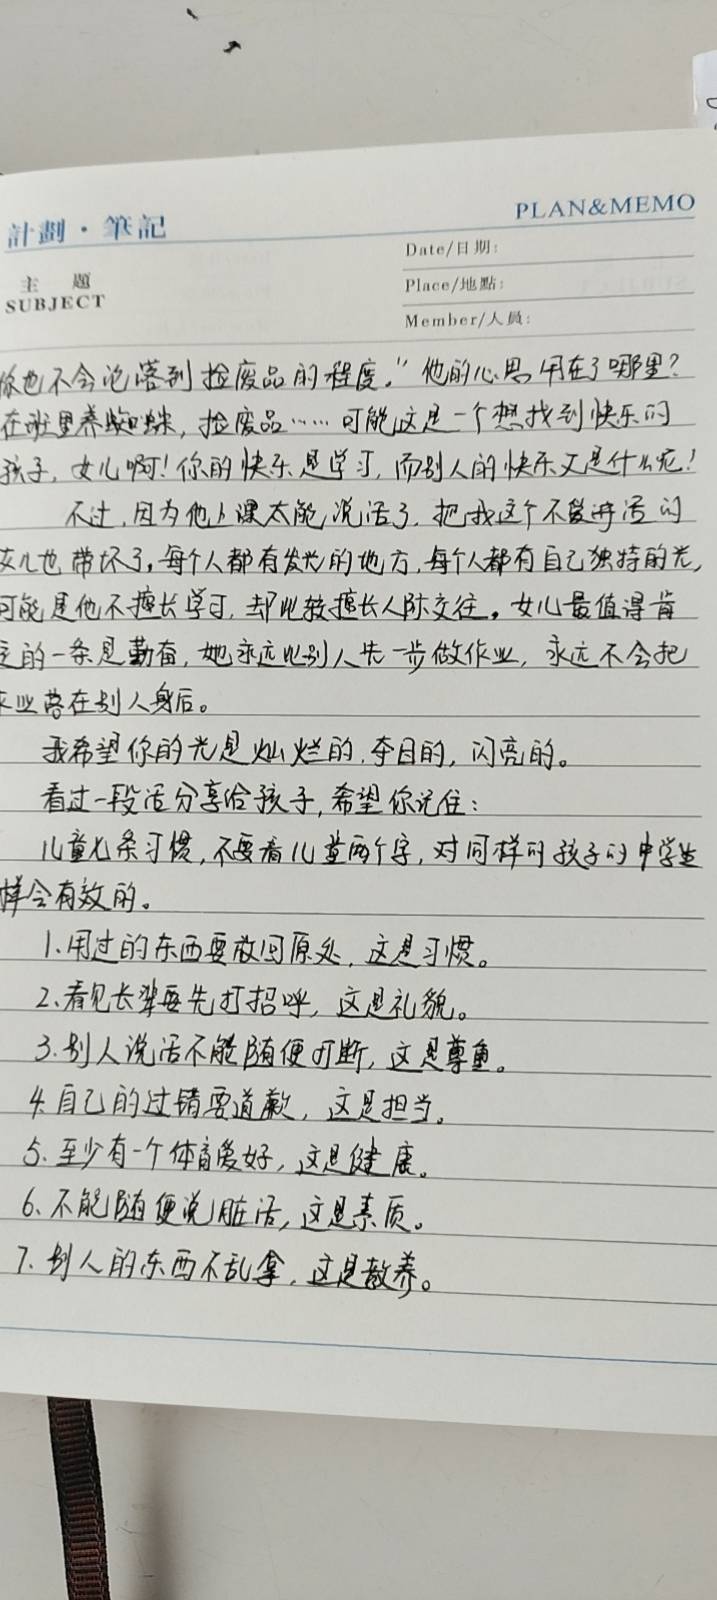 計劃·筆記
PLAN&MEMO
主 題
SUBJECT
Date/日期:
Place/地點:
Member/人員:
你也不会沦落到捡废品的程度。"他的心思用在了哪里?
在班里养蜘蛛,捡废品……可能这是一个想找到快乐的
孩子,女儿啊!你的快乐是学习,而别人的快乐又是什么呢!
不过,因为他上课太能说话了,把我这个不爱讲话的
女儿也带坏了,每个人都有发光的地方,每个人都有自己独特的光,
可能是他不擅长学习,却比较擅长人际交往。女儿最值得肯
定的一条是勤奋,她永远比别人先一步做作业,永远不会把
作业落在别人身后。
我希望你的光是灿烂的,夺目的,闪亮的。
看过一段话分享给孩子,希望你记住:
儿童七条习惯,不要看儿童两个字,对同样的孩子的中学生
样会有效的。
1.用过的东西要放回原处,这是习惯。
2、看见长辈要先打招呼,这是礼貌。
3.别人说话不能随便打断,这是尊重。
4.自己的过错要道歉,这是担当。
5.至少有一个体育爱好,这是健康。
6、不能随便说脏话,这是素质。
7.别人的东西不乱拿,这是教养。